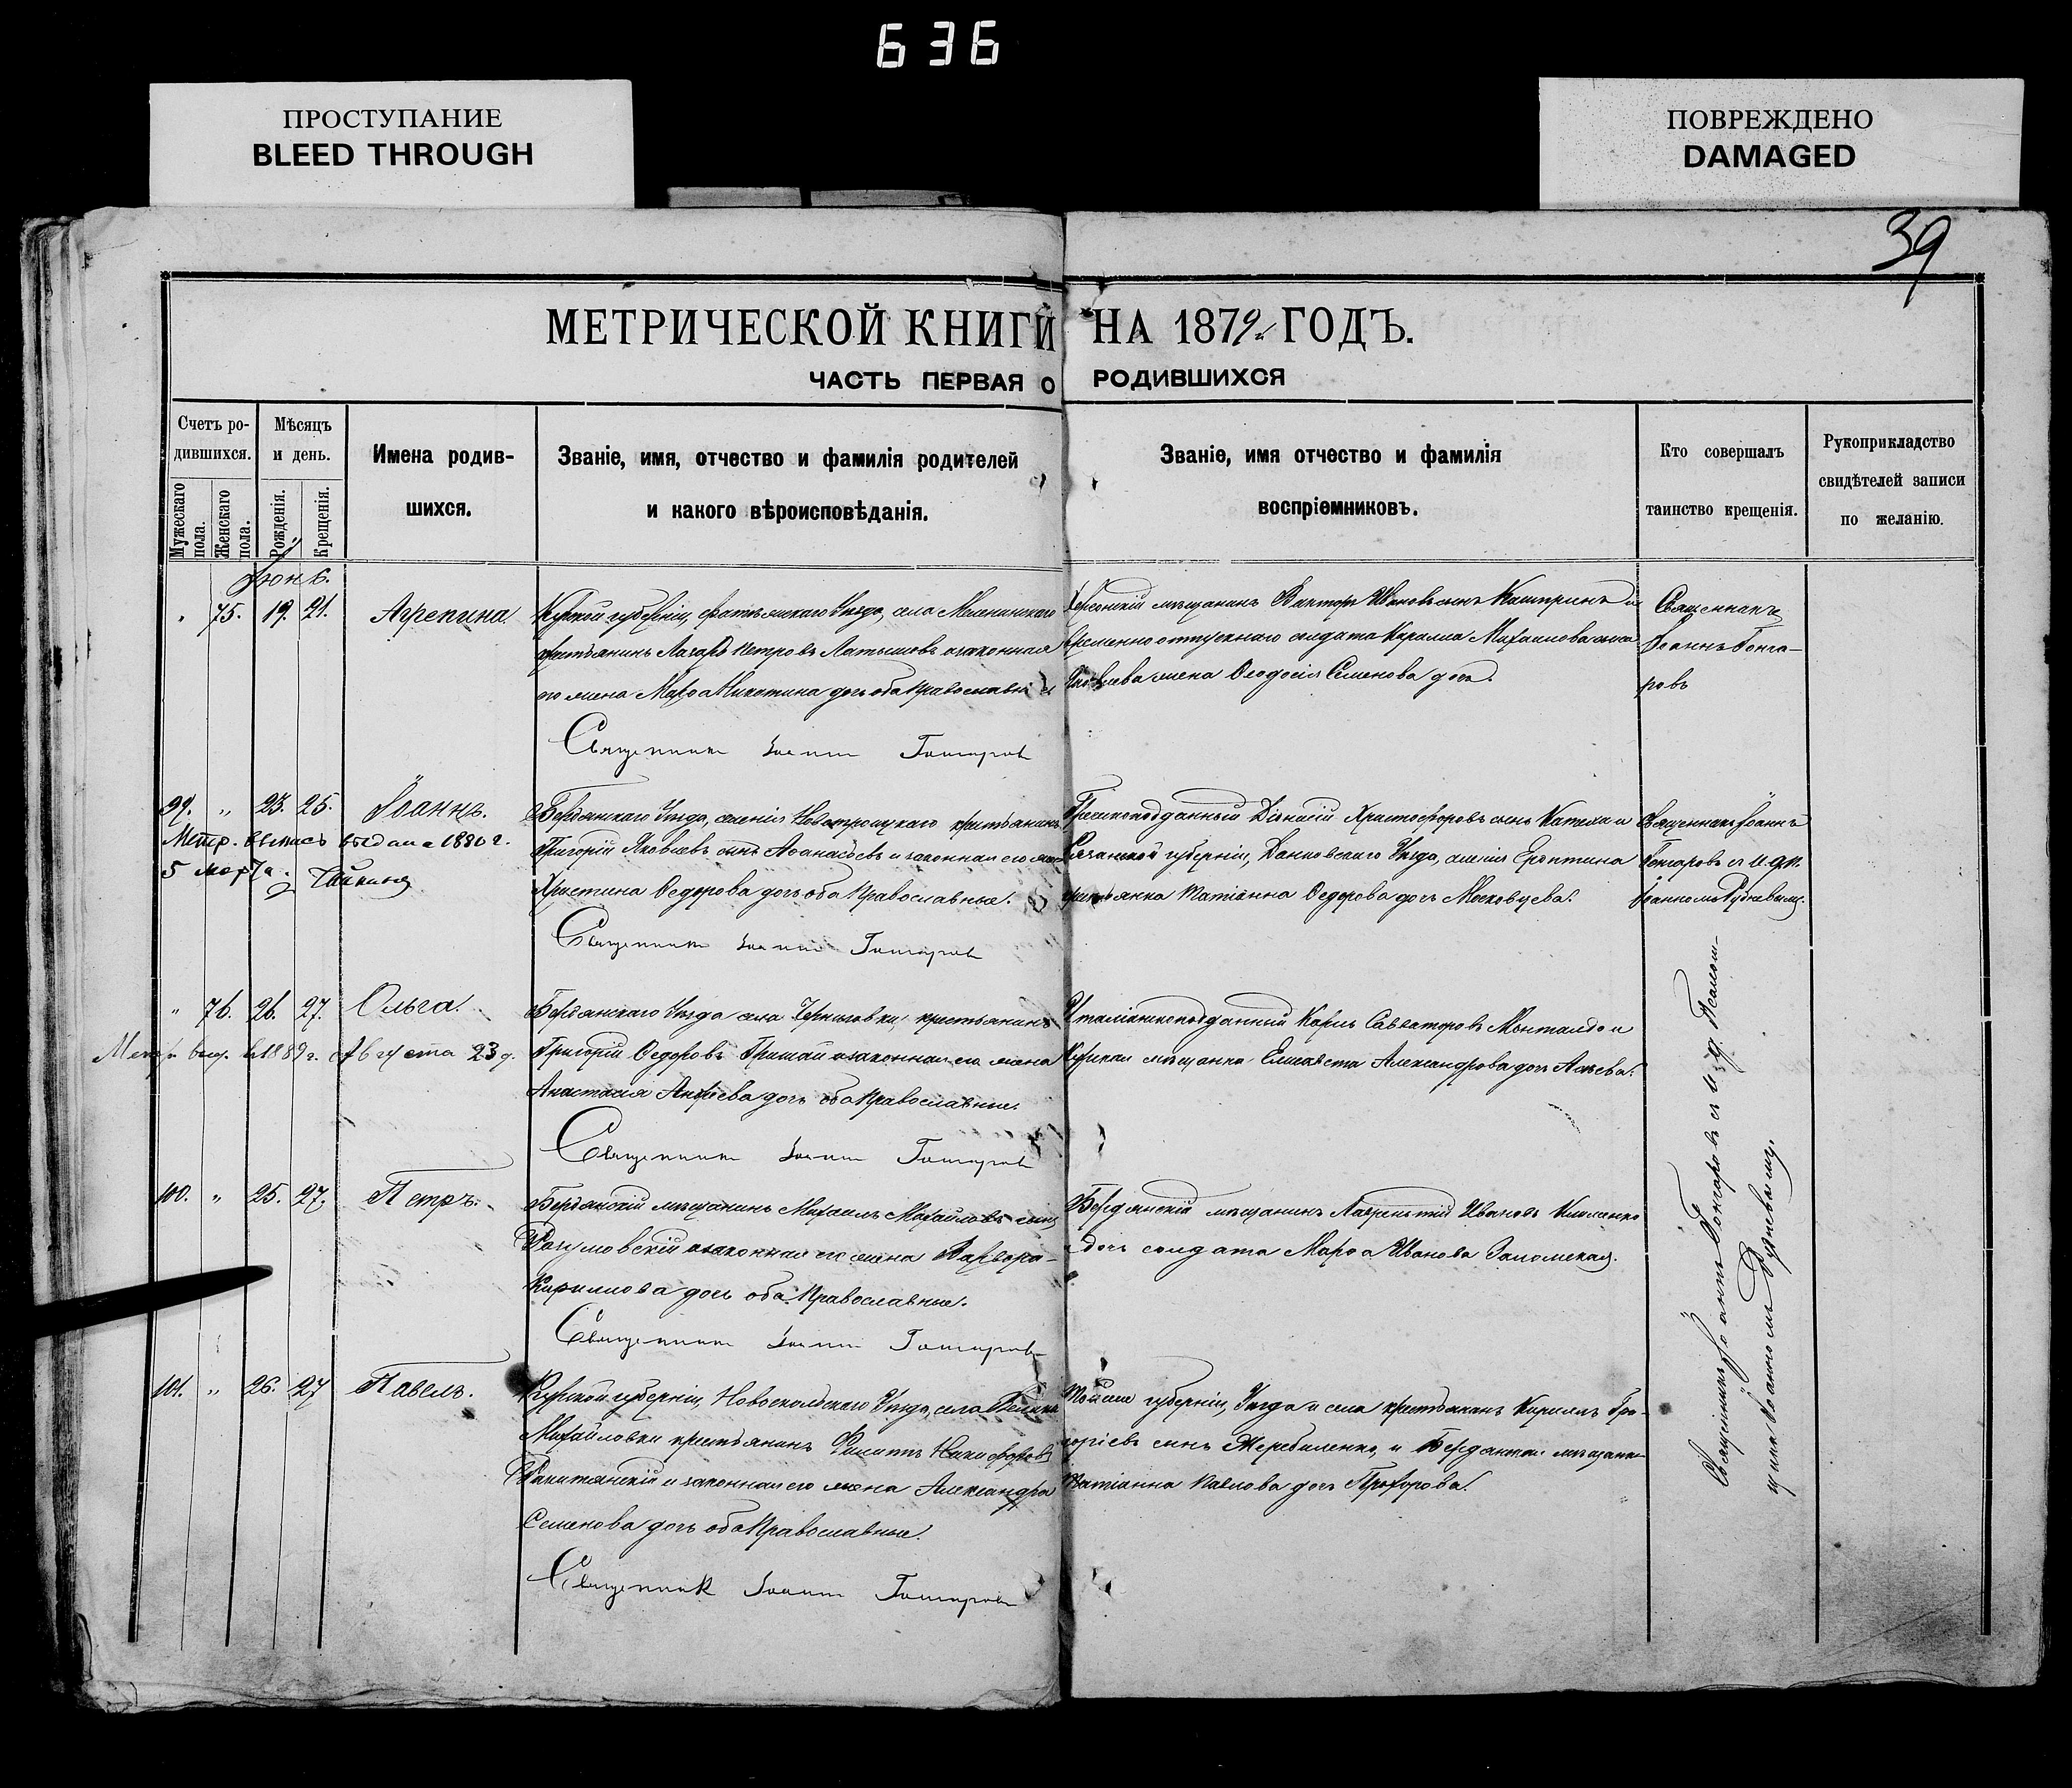 636
ПРОСТУПАНИЕ
BLEED THROUGH
ПОВРЕЖДЕНО
DAMAGED
39
МЕТРИЧЕСКОЙ КНИГИ НА 1879 ГОДЪ.
ЧАСТЬ ПЕРВАЯ О РОДИВШИХСЯ
Счетъ ро-
дившихся.
Мужескаго пола.
Женскаго пола.
Мѣсяцъ
и день.
Рожденія.
Крещенія.
Имена родив-
шихся.
Званіе, имя, отчество и фамилія родителей
и какого вѣроисповѣданія.
Званіе, имя отчество и фамилія
воспріемниковъ.
Кто совершалъ
таинство крещенія.
Рукоприкладство
свидѣтелей записи
по желанію.
Іюнь.
" 75. 19. 21. Агрепина.
Курской губерніи, Фатежскаго Уѣзда, села
крестьянинъ Лазарь Петровъ Латышовъ и законная
его жена Марѳа Никетина дочь оба Православные
Священникъ Іоаннъ Гончаровъ
Херсонскій мѣщанинъ Викторъ Ивановъ сынъ Каштринъ и
временно отпускнаго солдата Карпа Михаилова сына
Яковлева жена Ѳеодосія Семенова дочь.
Священникъ
Іоаннъ Гонча-
ровъ
99. " 23. 25. Іоаннъ.
Метр. выпись выдана 1880 г.
5 марта.
Бердянскаго Уѣзда, селенія Новотроицкаго крестьянинъ
Григорій Яковлевъ сынъ Аѳанасьевъ и законная его жена
Христина Ѳедорова дочь оба Православные.
Священникъ Іоаннъ Гончаровъ
Грекоподданный Діонисій Христофоровъ сынъ и
Рязанской губерніи, Данковскаго Уѣзда, селенія Еропкина
крестьянка Татіанна Ѳедорова дочь Московцева.
Священникъ Іоаннъ
Гончаровъ съ и. д. п.
Іоанномъ Рудневымъ.
" 76. 26. 27. Ольга.
Метр. выд. 1889 г. Августа 23 д.
Бердянскаго Уѣзда села Черниговки, крестьянинъ
Григорій Ѳедоровъ Гришай и законная его жена
Анастасія Андреева дочь оба Православные.
Священникъ Іоаннъ Гончаровъ
Италіанскоподданный Карлъ Савваторовъ и
Курская мѣщанка Елисавета Александрова дочь
100. " 25. 27. Петръ.
Бердянскій мѣщанинъ Михаилъ Михайловъ сынъ
Разумовскій и законная его жена Варвара
Кириллова дочь оба Православные.
Священникъ Іоаннъ Гончаровъ
Бердянскій мѣщанинъ Лаврентій Ивановъ Клименко
и дочь солдата Марѳа Иванова Заломская.
101. " 26. 27 Павелъ.
Курской губерніи, Новооскольскаго Уѣзда, села Велико
Михайловки крестьянинъ Филиппъ Никифоровъ
Ракитянскій и законная его жена Александра
Семенова дочь оба Православные.
Священникъ Іоаннъ Гончаровъ
Той же губерніи, Уѣзда и села крестьянинъ Кириллъ Гри-
горіевъ сынъ Жеребиленко, и Бердянская мѣщанка
Татіанна Павлова дочь Прохорова.
Священникъ Іоаннъ Гончаровъ съ и. д. Псалом-
щика Іоанномъ Рудневымъ.